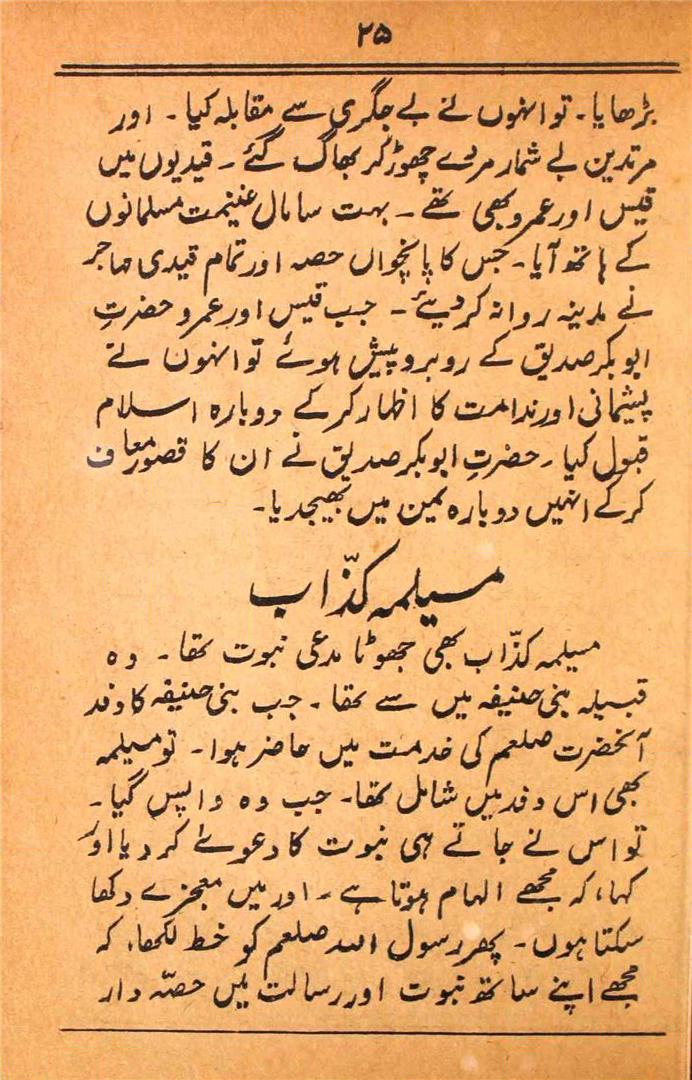 ۲۵
بڑھایا۔ تو انہوں نے بے جگری سے مقابلہ کیا۔ اور
مرتدین بے شمار مردے چھوڑ کر بھاگ گئے۔ قیدیوں میں
قیس اور عمرو بھی تھے۔ بہت سا مال غنیمت مسلمانوں
کے ہاتھ آیا۔ جس کا پانچواں حصہ اور تمام قیدی مہاجر
نے مدینہ روانہ کر دیئے۔ جب قیس اور عمرو حضرتِ
ابوبکر صدیق کے روبرو پیش ہوئے تو انہوں نے
پشیمانی اور ندامت کا اظہار کر کے دوبارہ اسلام
قبول کیا۔ حضرتِ ابوبکر صدیق نے ان کا قصور معاف
کر کے انہیں دوبارہ یمن میں بھیجدیا۔
مسیلمہ کذّاب
مسیلمہ کذّاب بھی جھوٹا مدعی نبوت تھا۔ وہ
قبیلہ بنی حنیفہ میں سے تھا۔ جب بنی حنیفہ کا وفد
آنحضرت صلعم کی خدمت میں حاضر ہوا۔ تو مسیلمہ
بھی اس وفد میں شامل تھا۔ جب وہ واپس گیا۔
تو اس نے جاتے ہی نبوت کا دعوےٰ کر دیا اور
کہا، کہ مجھے الہام ہوتا ہے۔ اور میں معجزے دکھا
سکتا ہوں۔ پھر رسول اللہ صلعم کو خط لکھا، کہ
مجھے اپنے ساتھ نبوت اور رسالت میں حصّہ دار